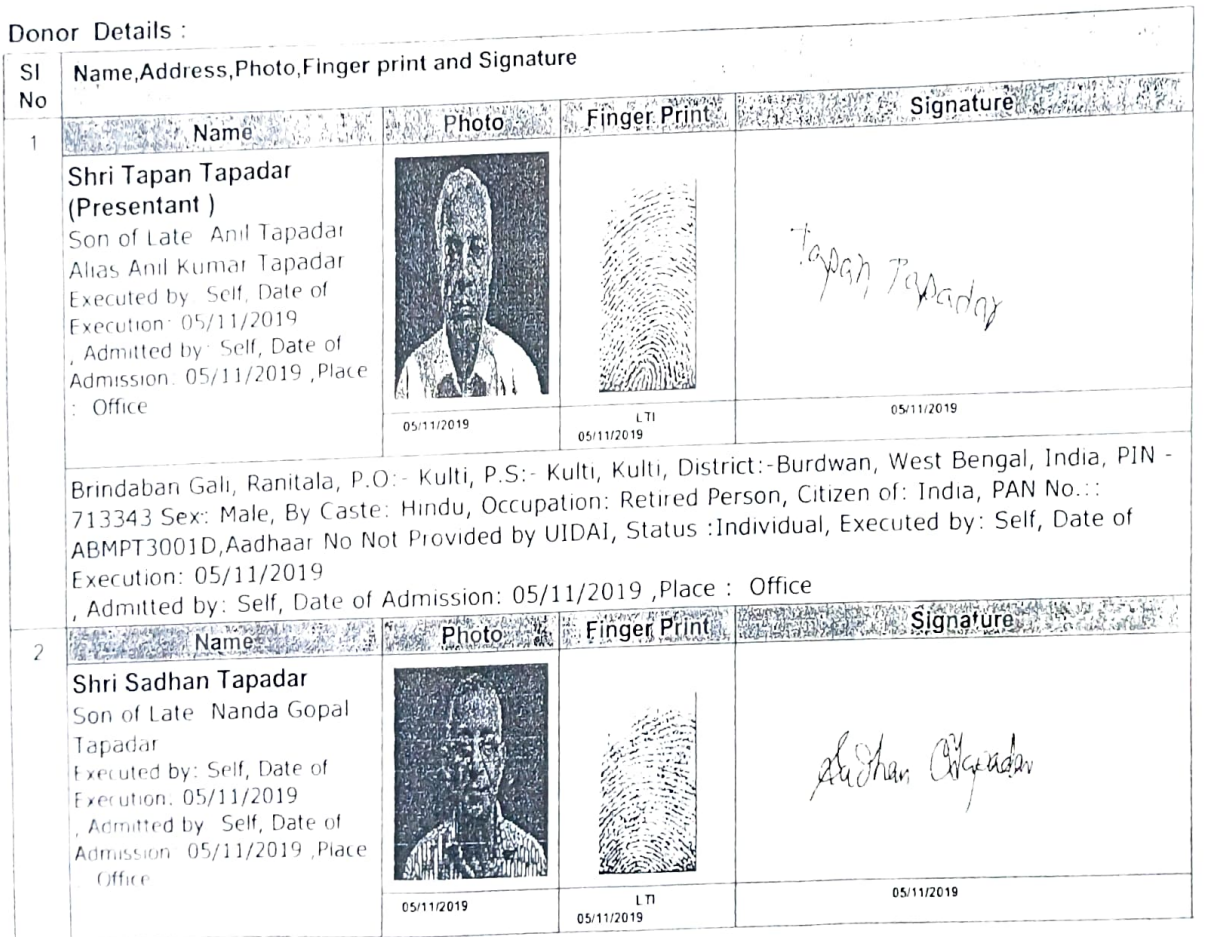 Donor Details :
Sl No Name,Address,Photo,Finger print and Signature
1 Name Photo Finger Print Signature
Shri Tapan Tapadar
(Presentant )
Son of Late Anil Tapadar
Alias Anil Kumar Tapadar
Executed by: Self, Date of
Execution: 05/11/2019
, Admitted by: Self, Date of
Admission: 05/11/2019 ,Place
: Office
Tapan Tapadar
05/11/2019
LTI
05/11/2019
05/11/2019
Brindaban Gali, Ranitala, P.O:- Kulti, P.S:- Kulti, Kulti, District:-Burdwan, West Bengal, India, PIN -
713343 Sex: Male, By Caste: Hindu, Occupation: Retired Person, Citizen of: India, PAN No.::
ABMPT3001D,Aadhaar No Not Provided by UIDAI, Status :Individual, Executed by: Self, Date of
Execution: 05/11/2019
, Admitted by: Self, Date of Admission: 05/11/2019 ,Place : Office
2 Name Photo Finger Print Signature
Shri Sadhan Tapadar
Son of Late Nanda Gopal
Tapadar
Executed by: Self, Date of
Execution: 05/11/2019
, Admitted by: Self, Date of
Admission: 05/11/2019 ,Place
Office
Sadhan Tapadar
05/11/2019
LTI
05/11/2019
05/11/2019